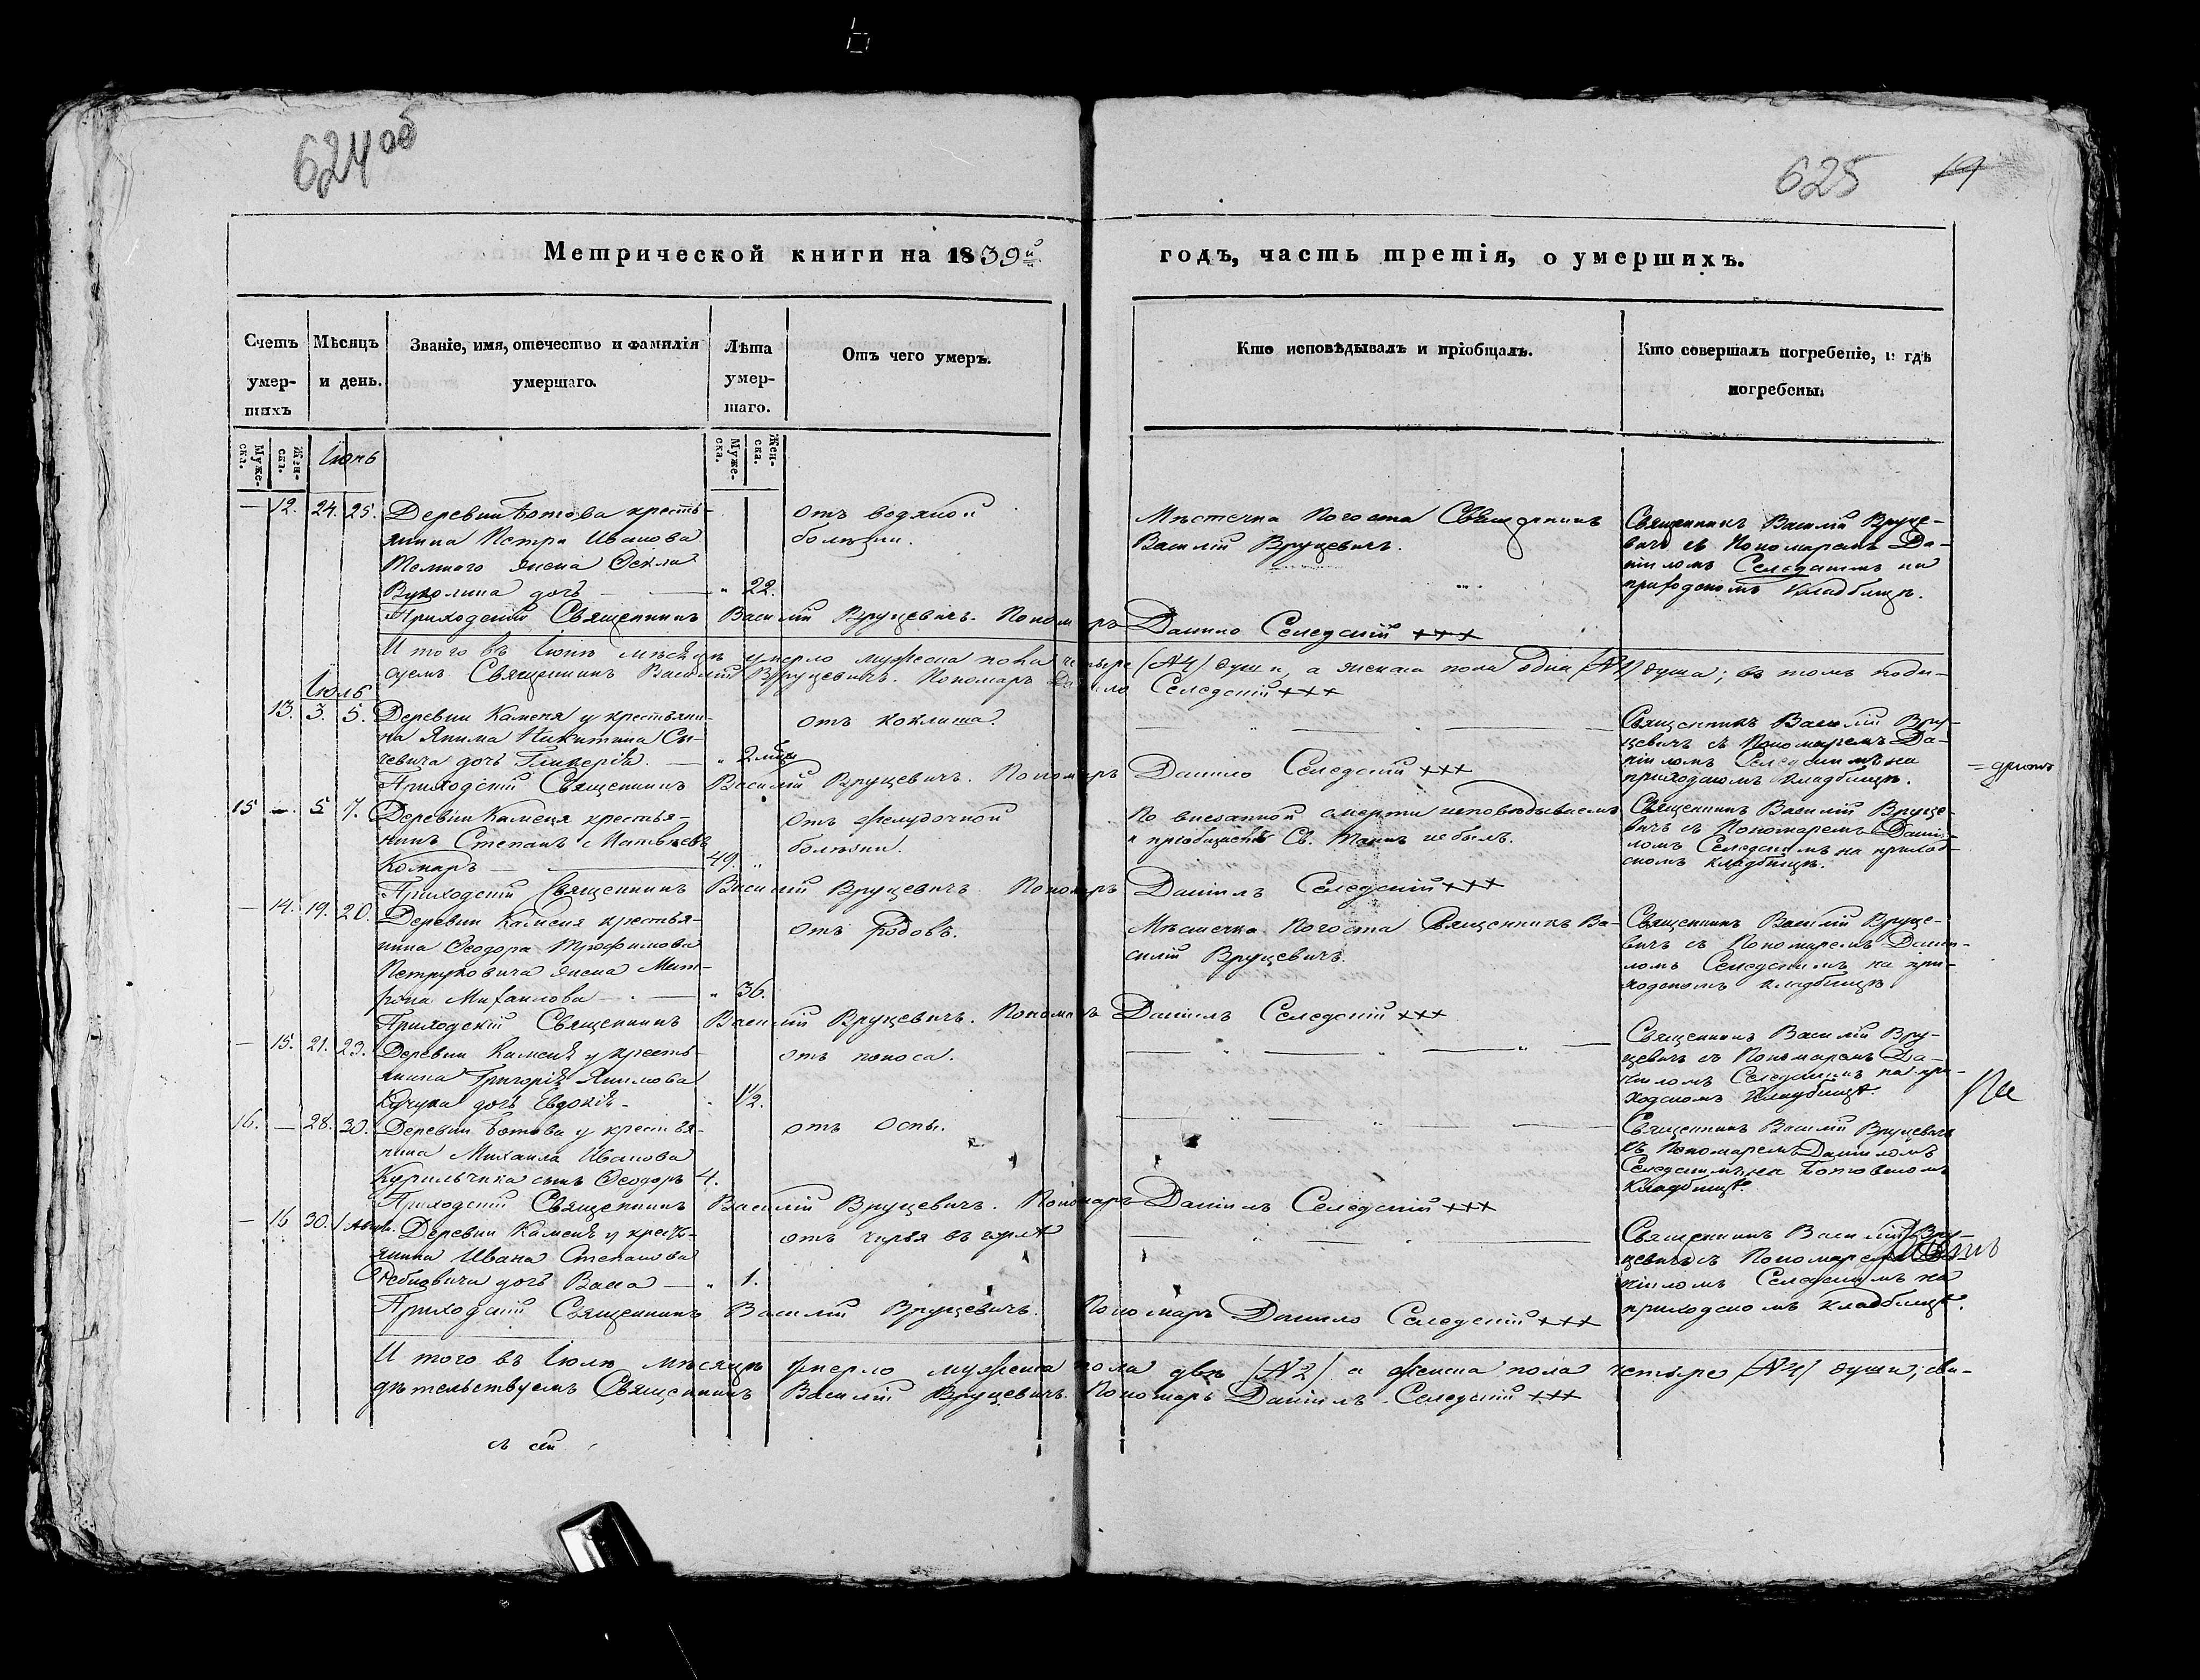 624об
625 19
Метрической книги на 1839й годъ, часть третія, о умершихъ.
Счетъ умер-шихъ
Мѣсяцъ и день.
Званіе, имя, отечество и фамилія умершаго.
Лѣта умер-шаго.
Отъ чего умеръ.
Кто исповѣдывалъ и пріобщалъ.
Кто совершалъ погребеніе, и гдѣ погребены.
Муже-ска. Жен-ска.
Муже-ска. Жен-ска.
Іюнь
— 12. 24. 25.
Деревни Ботова кресть-
янина Петра Иванова
Темного жена Ѳекла
Вуколина дочь — „ 22.
отъ водяной
болѣзни.
Мѣстечка Погоста Священникъ
Василій Вруцевичъ.
Священникъ Василій Вруце-
вичъ съ Пономаремъ Да-
ніиломъ Селедскимъ на
приходскомъ кладбищѣ.
Приходскій Священникъ Василій Вруцевичъ. Пономаръ Данило Селедскій +++
И того въ Іюнѣ мѣсяцѣ умерло мужеска пола четыре (№4) души, а женска пола одна (№1) душа; въ томъ подпи-
суемъ Священникъ Василій Вруцевичъ. Пономаръ Данило Селедскій +++
Іюль
13. 3. 5.
Деревни Каменя у крестьяни-
на Якима Никитина Сы-
чевича дочь Гликерія. — „ 2 мѣсц
отъ коклиша.
Священникъ Василій Вру-
цевичъ съ Пономаремъ Да-
ніиломъ Селедскимъ на
приходскомъ кладбищѣ.
Приходскій Священникъ Василій Вруцевичъ. Пономаръ Данило Селедскій +++
15 — 5 7.
Деревни Каменя крестья-
нинъ Степанъ Матвѣевъ
Комаръ — 49. „
отъ желудочной
болѣзни.
По внезапной смерти исповѣдываемъ
и пріобщаемъ Св. Таинъ не былъ.
Священникъ Василій Вруце-
вичъ съ Пономаремъ Даніи-
ломъ Селедскимъ на приход-
скомъ кладбищѣ.
Приходскій Священникъ Василій Вруцевичъ Пономаръ Даніилъ Селедскій +++
— 14. 19. 20.
Деревни Каменя крестья-
нина Ѳеодора Трофимова
Петруковича жена Мат-
рона Михаилова — „ 36.
отъ родовъ.
Мѣстечка Погоста Священникъ Ва-
силій Вруцевичъ.
Священникъ Василій Вруце-
вичъ съ Пономаремъ Даніи-
ломъ Селедскимъ на при-
ходскомъ кладбищѣ
Приходскій Священникъ Василій Вруцевичъ. Пономаръ Даніилъ Селедскій +++
— 15. 21. 23.
Деревни Каменя у кресть-
янина Григорія Якимова
Кучука дочь Евдокія - „ 1½.
отъ поноса.
Священникъ Василій Вру-
цевичъ съ Пономаремъ Да-
ніиломъ Селедскимъ на при-
ходскомъ кладбищѣ.
16. — 28. 30.
Деревни Ботова у крестья-
нина Михаила Иванова
Курильчика сынъ Ѳеодоръ 4.
отъ Оспы.
Священникъ Василій Вруцевичъ
съ Пономаремъ Даніиломъ
Селедскимъ на Ботовскомъ
кладбищѣ.
Приходскій Священникъ Василій Вруцевичъ. Пономаръ Даніилъ Селедскій +++
— 16 30. 1 Авгус.
Деревни Каменя у кресть-
янина Ивана Степанова
дочь Васса — „ 1.
отъ чирья въ горлѣ
Священникъ Василій Вру-
цевичъ съ Пономаремъ Да-
ніиломъ Селедскимъ на
приходскомъ кладбищѣ.
Приходскій Священникъ Василій Вруцевичъ. Пономаръ Данило Селедскій +++
И того въ Іюлѣ мѣсяцѣ умерло мужеска пола двѣ (№2) а женска пола четыре (№4) души; сви-
дѣтельствуемъ Священникъ Василій Вруцевичъ. Пономаръ Даніилъ Селедскій +++